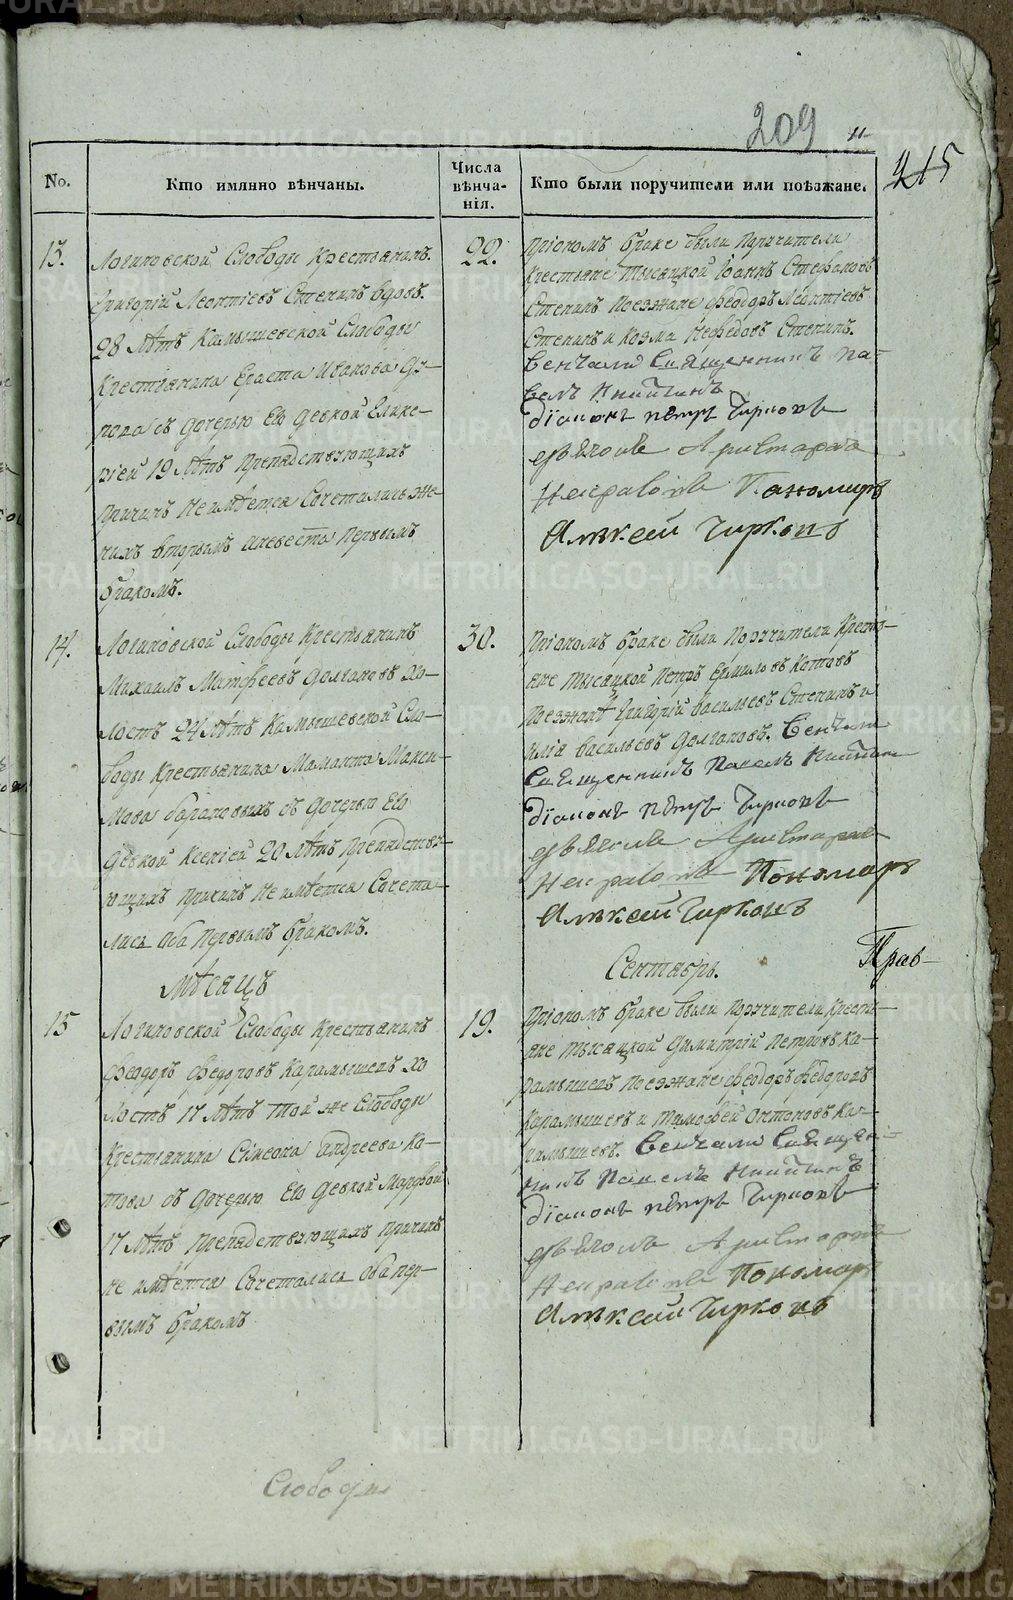 209
11
415
No.
Кто имянно вѣнчаны.
Числа
вѣнча-
нія.
Кто были поручители или поѣзжане.
13.
Логиновской Слободы Крестьянинъ
Григорій Леонтіевъ Степинъ вдовъ
28 лѣтъ Камышевской Слободы
Крестьянина Ераста Иванова
съ дочерью Ею девкой
19 лѣтъ Препядствующихъ
Причинъ Неимѣется Сочетались Же-
нихъ вторымъ Аневеста Первымъ
бракомъ.
22.
Присемъ браке были Поручители
Крестьяне Тысяцкой Іоаннъ Стефановъ
Степинъ Поезжане Феодоръ Леонтіевъ
Степинъ и Козма Нефедовъ Степинъ.
Венчали Священникъ Па-
велъ Никитинъ
діаконъ Петръ Чирковъ
Аристархъ
Пономарь
Алексей Чирковъ
14.
Логиновской Слободы Крестьянинъ
Михаилъ Матфеевъ Долгановъ хо-
лостъ 24 лѣтъ Камышевской Сло-
боды Крестьянина Маманта Макси-
мова барановыхъ съ дочерью Ею
девкой Ксеніей 20 лѣтъ Препядству-
ющихъ Причинъ Неимѣется Сочета-
лись Оба Первымъ бракомъ.
30.
Присемъ браке были Поручители Крестья-
яне Тысяцкой Петръ Ермиловъ Котовъ
Поезжане Григорій Васильевъ Степинъ и
Илія Васильевъ Долгановъ. Венчали
Священникъ Павелъ Никитинъ
діаконъ Петръ Чирковъ
Аристархъ
Пономарь
Алексей Чирковъ
Прав-
Мѣсяцъ
Сентябрь.
15
Логиновской Слободы Крестьянинъ
Феодоръ Федоровъ Карамышевъ хо
лостъ 17 лѣтъ Той же Слободы
Крестьянина Симеона Андреева Ко-
това съ дочерью Ею девкой Марфой
17 лѣтъ Препядствующихъ Причинъ
не имѣется Сочетались Оба пер-
вымъ бракомъ
19.
Присемъ браке были Поручители Крестья-
яне Тысяцкой Димитрій Петровъ Ка-
рамышевъ Поезжане Феодоръ Федоровъ
Карамышевъ и Тимофей Антоновъ Ка-
рамышевъ. Венчали Священ-
никъ Павелъ Никитинъ
діаконъ Петръ Чирковъ
Аристархъ
Пономарь
Алексей Чирковъ
Слободы
METRIKI.GASO-URAL.RU